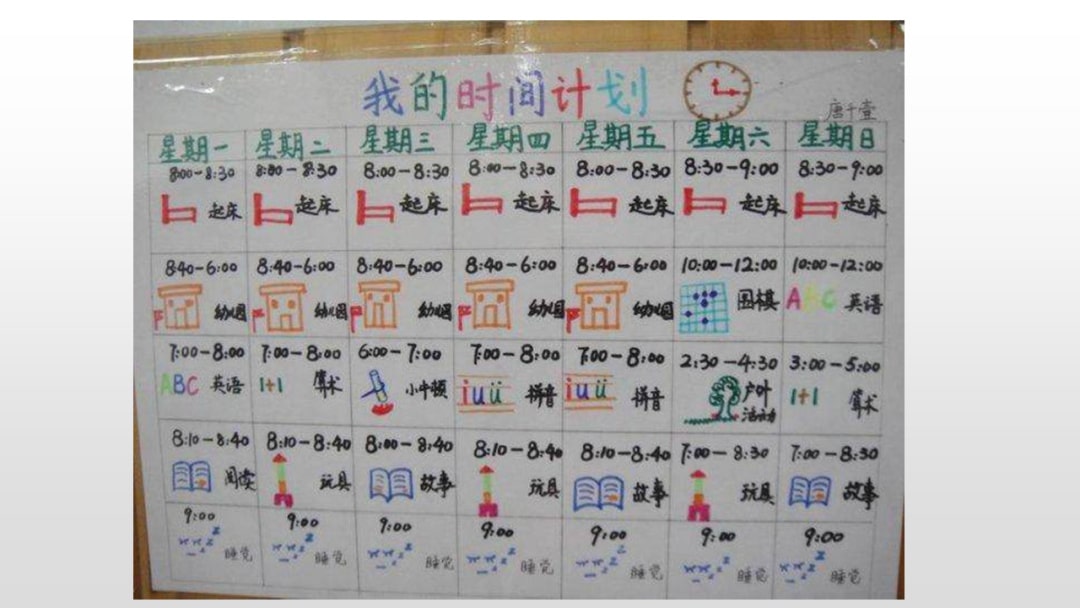 我的时间计划
唐千壹
星期一 星期二 星期三 星期四 星期五 星期六 星期日
8:00-8:30 8:00-8:30 8:00-8:30 8:00-8:30 8:00-8:30 8:30-9:00 8:30-9:00
起床 起床 起床 起床 起床 起床 起床
8:40-6:00 8:40-6:00 8:40-6:00 8:40-6:00 8:40-6:00 10:00-12:00 10:00-12:00
幼儿园 幼儿园 幼儿园 幼儿园 幼儿园 围棋 ABC 英语
7:00-8:00 7:00-8:00 6:00-7:00 7:00-8:00 7:00-8:00 2:30-4:30 3:00-5:00
ABC 英语 1+1 算术 小牛顿 iuü 拼音 iuü 拼音 户外 1+1 算术
活动
8:10-8:40 8:10-8:40 8:00-8:40 8:10-8:40 8:10-8:40 7:00-8:30 7:00-8:30
阅读 玩具 故事 玩具 故事 玩具 故事
9:00 9:00 9:00 9:00 9:00 9:00 9:00
睡觉 睡觉 睡觉 睡觉 睡觉 睡觉 睡觉